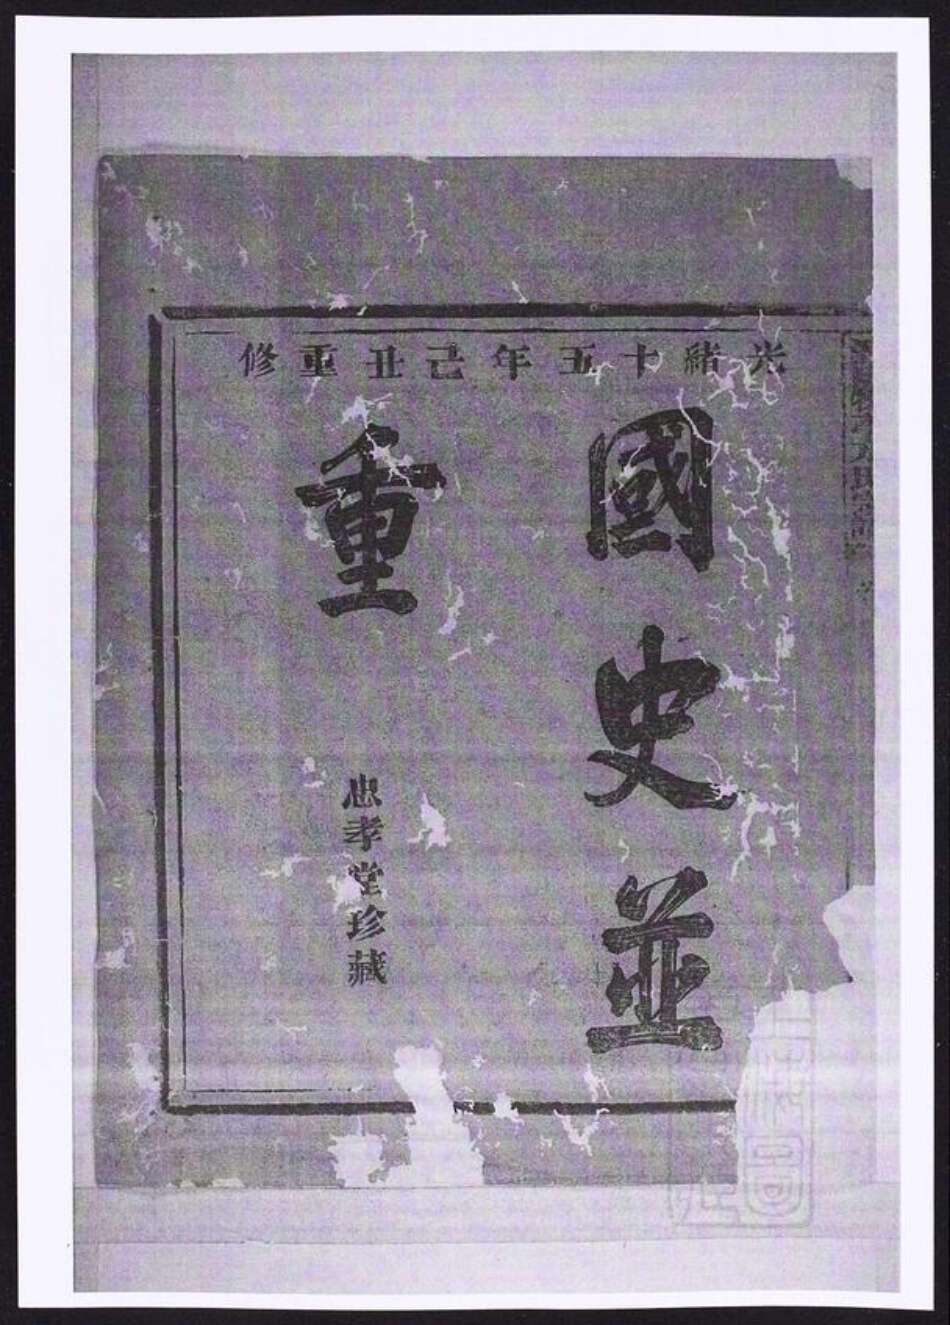 光緒十五年己丑重修
國史並
重
忠孝堂珍藏